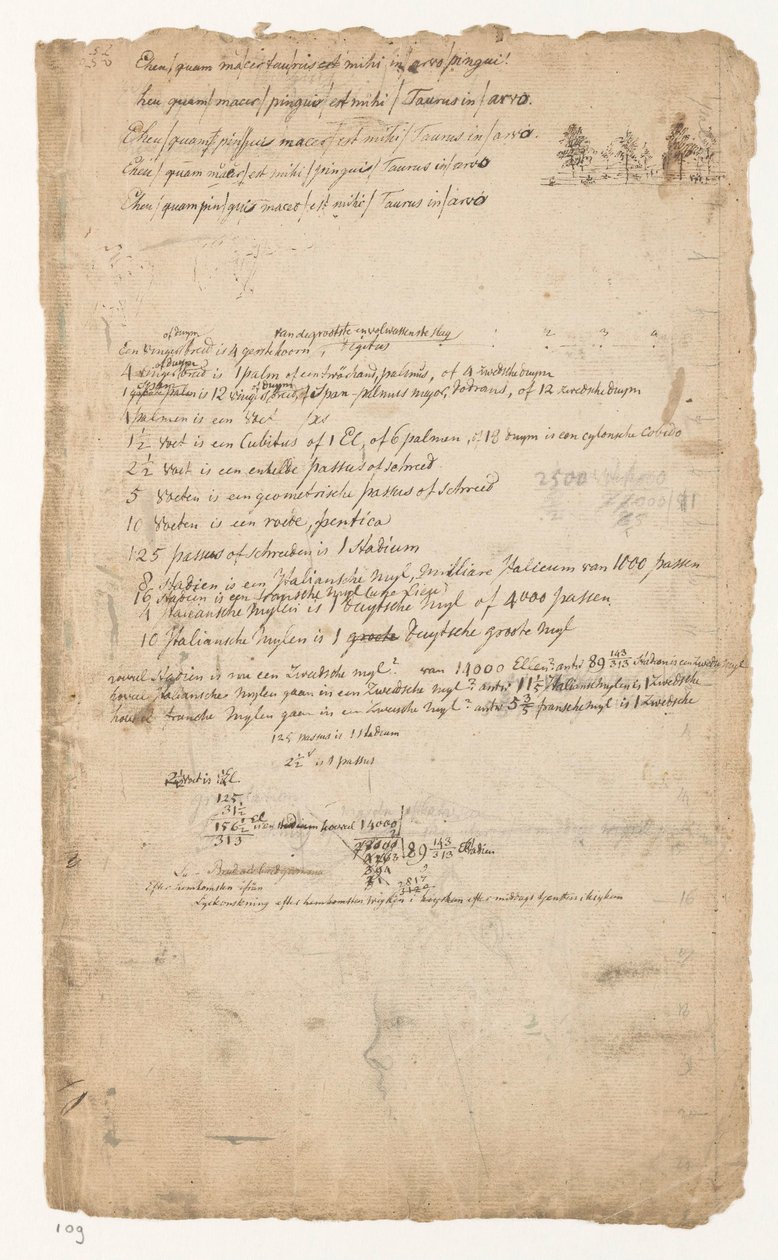 Eheu/ quam macer taurus est mihi in arvo pingui!
heu quam/ macer/ pinguis/ est mihi / Taurus in/ arvo.
Eheu/ quam pinguis macer/ est mihi/ Taurus in/ arvo.
Eheu/ quam macer/ est mihi / pinguis/ Taurus in/ arvo
Eheu/ quam pin/guis macer /est mihi/ Taurus in/ arvo
of duym van de grootste en volwassenste
Een vinger breed is 4 gerstekoorn, digitus
2 3 4
of duym
4 vinger breed is 1 palm of een hand, palmus, of 4 zwedsche duym
Span of duym
1 palm is 12 vinger breed, of Span-palmus major, Dodrans, of 12 zwedsche duym
4 palmen is een voet
1½ Voet is een Cubitus of 1 El, of 6 palmen, of 18 duym is een cylonsche Cobido
2½ Voet is een enkelde passus of schreed
2500
5 Voeten is een geometrische passus of schreed
10 Voeten is een roede, pertica
125 passus of schreeden is 1 Stadium
8 Stadien is een Italiansche myl, Milliare Italicum van 1000 passen
16 Stadien is een fransche myl
4 Italiansche Mylen is 1 Duytsche Myl of 4000 passen.
10 Italiansche Mylen is 1 groote Duytsche groote Myl
hoveel Stadien is nu een Zweedsche myl? van 14000 Ellen? antw 89 143/313 Stadien is een Zweedsche Myl
hoveel Italiansche Mylen gaan in een Zweedsche Myl? antw 11⅕ Italianschemylen is 1 Zwedsche
hoeveel fransche Mylen gaan in een Zweedsche Myl? antw 5⅗ fransche myl is 1 Zwedsche
125 passus is 1 Stadium
2½ v is 1 passus
voet is El.
125
31½
156½ El is een Stadium hoveel 14000
313
2
89 143/313 Stadien
2817
Efter hemkomsten ifrån
efter hemkomsten efter middags
109